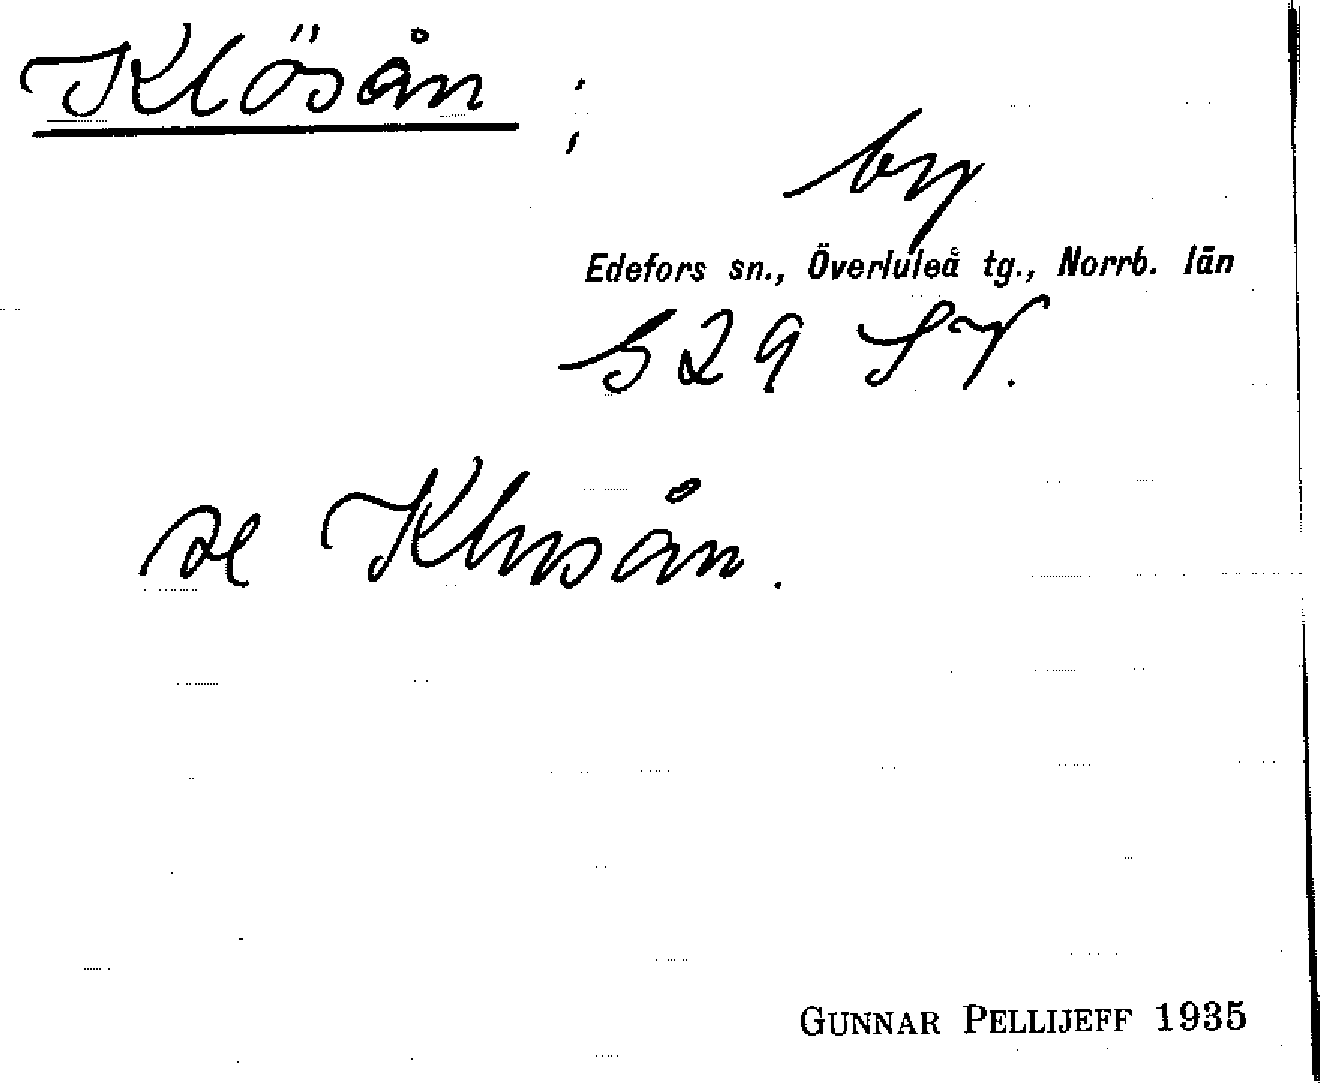 Klösån ;
by
Edefors sn., Överluleå tg., Norrb. län
529
se Klusån.
GUNNAR PELLIJEFF 1935